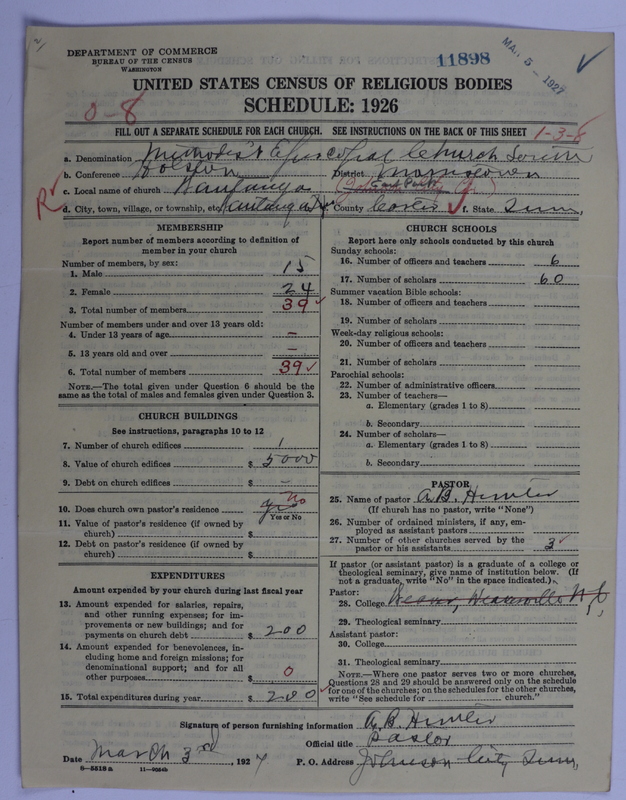 DEPARTMENT OF COMMERCE
BUREAU OF THE CENSUS
WASHINGTON
11898
MAR 5 - 1927
UNITED STATES CENSUS OF RELIGIOUS BODIES
SCHEDULE: 1926
0-8
FILL OUT A SEPARATE SCHEDULE FOR EACH CHURCH. SEE INSTRUCTIONS ON THE BACK OF THIS SHEET
1-3-8
a. Denomination Methodist Episcopal Church South
b. Conference Holston District Morristown
c. Local name of church Watauga
R
d. City, town, village, or township, etc. Watauga e. County Carter f. State Tenn,
MEMBERSHIP
Report number of members according to definition of member in your church
Number of members, by sex:
1. Male 15
2. Female 24
3. Total number of members 39
Number of members under and over 13 years old:
4. Under 13 years of age –
5. 13 years old and over –
6. Total number of members 39
NOTE.—The total given under Question 6 should be the same as the total of males and females given under Question 3.
CHURCH BUILDINGS
See instructions, paragraphs 10 to 12
7. Number of church edifices 1
8. Value of church edifices $ 5000
9. Debt on church edifices $ –
10. Does church own pastor's residence yes No
Yes or No
11. Value of pastor's residence (if owned by church) $
12. Debt on pastor's residence (if owned by church) $
EXPENDITURES
Amount expended by your church during last fiscal year
13. Amount expended for salaries, repairs, and other running expenses; for improvements or new buildings; and for payments on church debt $ 200
14. Amount expended for benevolences, including home and foreign missions; for denominational support; and for all other purposes $ 0
15. Total expenditures during year $ 200
CHURCH SCHOOLS
Report here only schools conducted by this church
Sunday schools:
16. Number of officers and teachers 6
17. Number of scholars 60
Summer vacation Bible schools:
18. Number of officers and teachers
19. Number of scholars
Week-day religious schools:
20. Number of officers and teachers
21. Number of scholars
Parochial schools:
22. Number of administrative officers
23. Number of teachers—
a. Elementary (grades 1 to 8)
b. Secondary
24. Number of scholars—
a. Elementary (grades 1 to 8)
b. Secondary
PASTOR
25. Name of pastor A.B. Hunter
(If church has no pastor, write "None")
26. Number of ordained ministers, if any, employed as assistant pastors
27. Number of other churches served by the pastor or his assistants 3
If pastor (or assistant pastor) is a graduate of a college or theological seminary, give name of institution below. (If not a graduate, write "No" in the space indicated.)
Pastor:
28. College Weaver, Weaverville N, C
29. Theological seminary
Assistant pastor:
30. College
31. Theological seminary
NOTE.—Where one pastor serves two or more churches, Questions 28 and 29 should be answered only on the schedule for one of the churches; on the schedules for the other churches, write "See schedule for church."
Signature of person furnishing information A.B. Hunter
Official title Pastor
Date March 3rd, 1927 P. O. Address Johnson City Tenn,
6—5518a 11—9054b